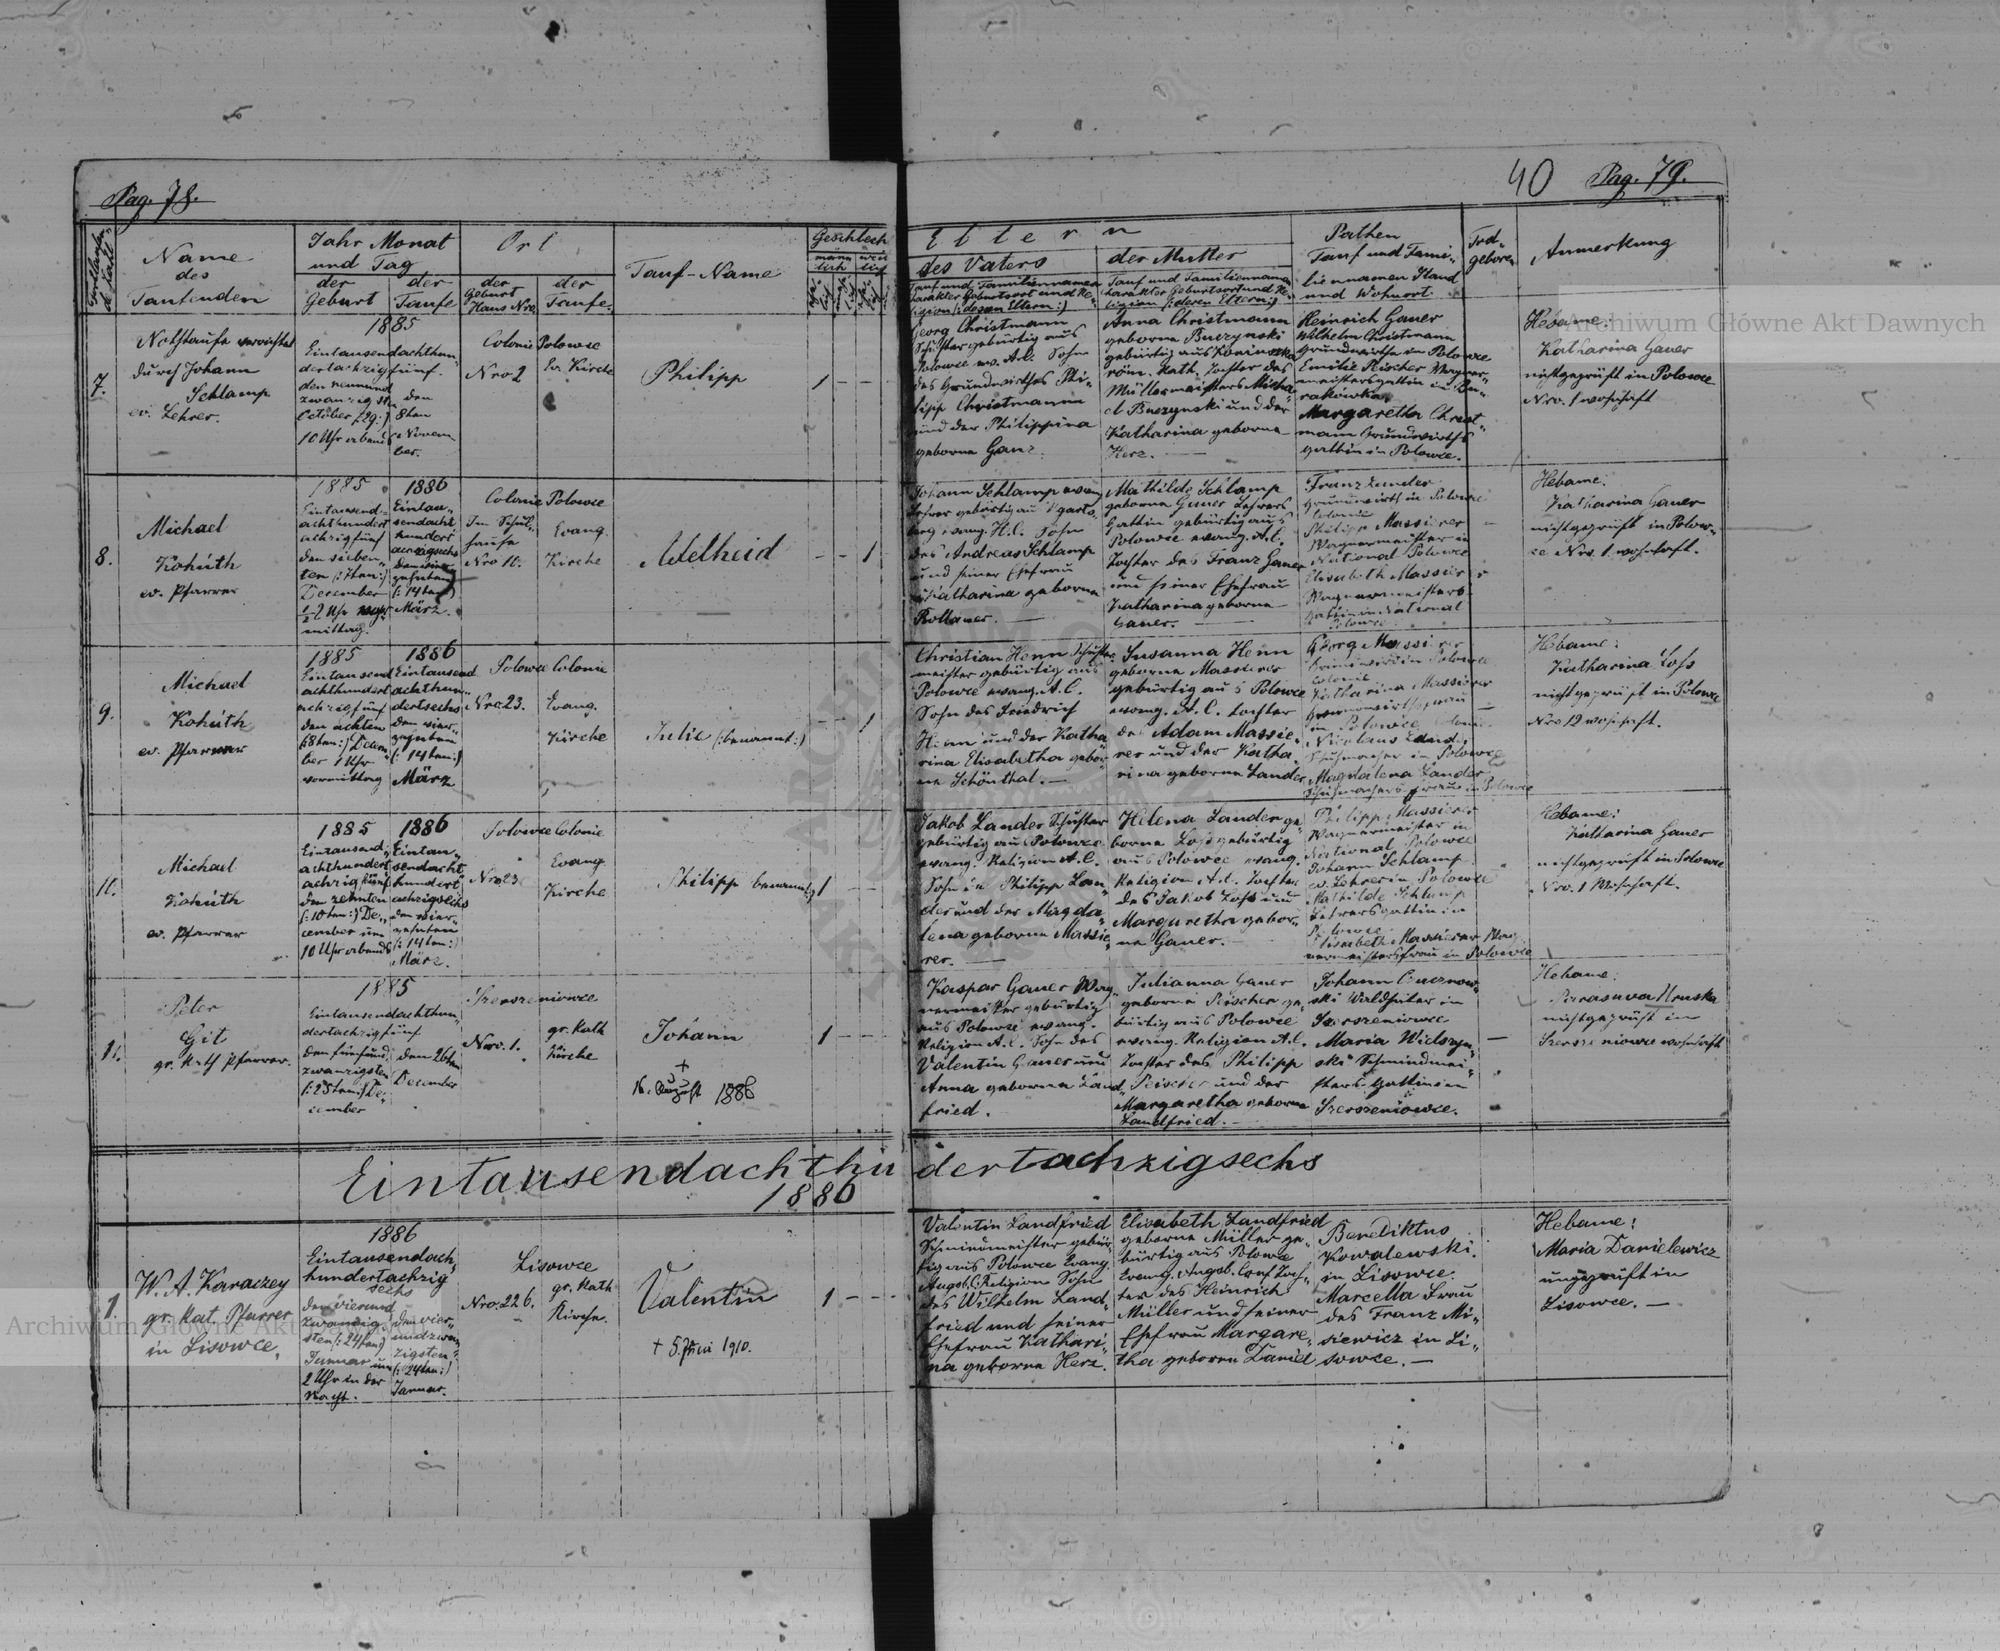 Pag. 78.
40 Pag. 79.
Name
des
Taufenden
Jahr Monat
und Tag
der
Geburt
der
Taufe
Ort
der
Geburt
Haus Nro.
der
Taufe
Tauf-Name
Geschlecht
männlich
weiblich
Eltern
des Vaters
der Mutter
Pathen
Tauf und Familiennamen Stand
und Wohnort.
Todgeboren
Anmerkung
7.
Nothtaufe verrichtet
durch Johann
Schlamp
ev. Lehrer.
1885
Eintausendachthun-
dertachzigfünf.
den neunund
zwanzigsten
October (:29.)
10 Uhr abends
den
8ten
Novem-
ber.
Colonie Polowce
Nro 2
Ev. Kirche
Philipp
1
Georg Christmann
Schuster gebürtig aus
Polowce ev. A.C. Sohn
des Grundwirthes Phi-
lipp Christmann
und der Philippina
geborne Ganz.
Anna Christmann
geborne Buczynski
gebürtig aus
röm. Kath. Tochter des
Müllermeisters Micha-
el Buczynski und der
Katharina geborne
Herz.
Heinrich Gauer
Wilhelm Christmann
Grundwirthe in Polowce
Emilie Reischer Wagner-
meistersgattin in
Margaretha Christ-
mann Grundwirths
gattin in Polowce.
Hebame:
Katharina Gauer
nichtgeprüft in Polowce
Nro. 1 wohnhaft
8.
Michael
Kohúth
ev. Pfarrer
1885
Eintausend-
achthundert
achzigfünf
den sieben-
ten (:7ten:)
December
1886
Eintau-
sendacht
hundert
achzigsechs
(:14ten:)
März.
Colonie Polowce
Im Schul-
hause
Nro 10.
Evang.
Kirche
Adelheid
1
Johann Schlamp evang.
Lehrer gebürtig aus
evang. H.C. Sohn
des Andreas Schlamp
und seiner Ehefrau
Katharina geborne
Mathilde Schlamp
geborne Gauer Lehrers
Gattin gebürtig aus
Polowce evang. A.C.
Tochter des Franz Gauer
und seiner Ehefrau
Katharina geborne
Gauer.
Franz Lander
Grundwirth in Polowce
Colonie
Philipp Massierer
Wagnermeister in
National Polowce
Elisabeth Massierer
Wagnermeisters
Gattin in National
Polowce
Hebame:
Katharina Gauer
nichtgeprüft in Polow-
ce Nro. 1 wohnhaft.
9.
Michael
Kohúth
ev. Pfarrer
1885
Eintausend
achthundert
achzigfünf
den achten
(:8ten:) Decem-
ber 1 Uhr
vormittag
1886
Eintausend
achthun-
dertsechs
den vier-
zehnten
(:14ten:)
März
Polowce Colonie
Nro 23.
Evang.
Kirche
Julie (:benannt:)
1
Christian Henn Schuster-
meister gebürtig aus
Polowce evang. A.C.
Sohn des Friedrich
Henn und der Katha-
rina Elisabetha gebor-
ne Schönthal.
Susanna Henn
geborne Massierer
gebürtig aus Polowce
evang. A.C. Tochter
des Adam Massie-
rer und der Katha-
rina geborne Lander.
Georg Massierer
Colonie
Katharina Massierer
in Polowce
Nicolaus Lander
Schuhmacher in Polowce
Magdalena Lander
Schuhmachers frau in Polowce
Hebame:
Katharina Loss
nichtgeprüft in Polowce
Nro 12 wohnhaft.
10.
Michael
Kohúth
ev. Pfarrer
1885
Eintausend
achthundert
achzigfünf
den zehnten
(:10ten:) De-
cember um
10 Uhr abends
1886
Eintau-
sendacht
hundert
achzigsechs
den vier-
zehnten
(:14ten:)
März.
Polowce Colonie
Nro 23
Evang.
Kirche
Philipp benannt
1
Jakob Lander Schuster
gebürtig aus Polowce
evang. Religion A.C.
Sohn des Philipp Lan-
der und der Magda-
lena geborne Massie-
rer.
Helena Lander ge-
borne Loss gebürtig
aus Polowce evang.
Religion A.C. Tochter
des Jakob Loss und
Margaretha gebor-
ne Gauer.
Philipp Massierer
Wagnermeister in
National Polowce
Johann Schlamp
ev. Lehrer in Polowce
Mathilde Schlamp
Lehrersgattin in
Polowce
Elisabeth Massierer Wag-
nermeistersfrau in Polowce
Hebame:
Katharina Gauer
nichtgeprüft in Polowce
Nro. 1 Wohnhaft.
11.
Peter
Git
gr. Kath Pfarrer.
1885
Eintausendachthun-
dertachzigfünf
den fünfund
zwanzigsten
(:25ten:) De-
cember
den 26ten
December
Szerszeniowce
Nro. 1.
gr. Kath
Kirche
Johann
+
16. August 1886
1
Kaspar Gauer Wag-
nermeister gebürtig
aus Polowce evang.
Religion A.C. Sohn des
Valentin Gauer und
Anna geborne Land-
fried.
Julianna Gauer
geborne Reischer ge-
bürtig aus Polowce
evang. Religion A.C.
Tochter des Philipp
Reischer und der
Margaretha geborne
Landfried.
Johann
Szerszeniowce
Maria
Schmiedmei-
sters-Gattin in
Szerszeniowce.
Hebame:
nichtgeprüft in
Szerszeniowce wohnhaft
Eintausendachthundertachzigsechs
1886
1.
W. A. Karaczey
gr. Kat. Pfarrer
in Lisowce.
1886
Eintausendach-
hundertachzig
sechs
den vierund
zwanzig-
sten (:24ten)
Januar um
2 Uhr in der
Nacht.
den vier-
undzwan-
zigsten
(:24ten:)
Januar.
Lisowce
Nro. 226.
gr. Kath
Kirche.
Valentin
+ 5. Juni 1910.
1
Valentin Landfried
Schmiedmeister gebür-
tig aus Polowce Evang.
Augsb. C. Religion Sohn
des Wilhelm Land-
fried und seiner
Ehefrau Kathari-
na geborne Herz.
Elisabeth Landfried
geborne Müller ge-
bürtig aus Polowce
Evang. Augsb. Conf Toch-
ter des Heinrich
Müller und seiner
Ehefrau Margare-
tha geborne Daniel
Benediktus
Kowalewski
in Lisowce.
Marcella Frau
des Franz Mi-
siewicz in Li-
sowce.
Hebame:
Maria Danielewicz
ungeprüft in
Lisowce.
Archiwum Główne Akt Dawnych
Archiwum Główne Akt Dawnych